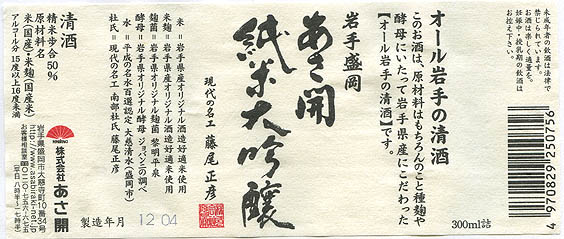 未成年者の飲酒は法律で
禁じられています。
お酒は楽しく適量を。
妊娠中・授乳期の飲酒は
お控え下さい。
4 970829 250756
オール岩手の清酒
このお酒は、原材料はもちろんのこと種麹や
酵母にいたって岩手県産にこだわった
【オール岩手の清酒】です。
300ml詰
岩手盛岡
あさ開
純米大吟醸
現代の名工 藤尾正彦
米=岩手県産オリジナル酒造好適米使用
米麹=岩手県産オリジナル酒造好適米使用
麹菌=岩手県オリジナル麹菌 黎明平泉
酵母=岩手県オリジナル酵母 ジョバンニの調べ
水=平成の名水百選認定 大慈清水(盛岡市)
杜氏=現代の名工 南部杜氏 藤尾正彦
製造年月 12.04
清酒
精米歩合 50%
原材料名
米(国産)・米麹(国産米)
アルコール分 15度以上16度未満
株式会社 あさ開
岩手県盛岡市大慈寺町10番34号
http://www.asabiraki-net.jp
お客様相談室
平日 八時半~一七時半